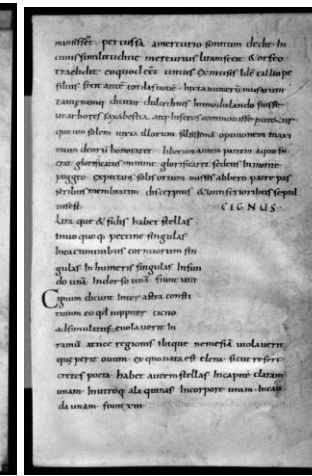 mansisset percussa amercurio sonitum dedit In
cuius similitudine mercurius liram fecit & orfeo
tradidit eo quod eēt unius ex musis idē calliope
filius fecit autē cordas nouē iuxta numerū musarum
tam dulcis Inmodulando fuisse
ut arbores saxa bestia atq Inferos commouisse
solem iuxta illorum opinionem maxi
mum deorū honoraret liberum autem patrem a quo fu
erat glorificatus minime glorificaret sedens Inmonte
expectans solis ortum missis alibero patre
membratim discerptus & Inferioribus sepul
CIGNUS
Lira que & fidis habet stellas
In uno quoq pectine singulas
In cacuminibus cornuorum sin
gulas In humeris singulas In fun
do unā In dorso unā fiunt uiiii
Cignum dicunt Inter astra consti
tutum eo qd iuppiter cicno
adsimulatus euolauerit In
ramū attice regionis ibique nemesiā uiolauerit
que perit ouum ex quo nata est elena sicut refert
poeta habet autem stellas In capite claram
unam In utrūq ala quinas Incorpore unam In cau
da unam fiunt xiii